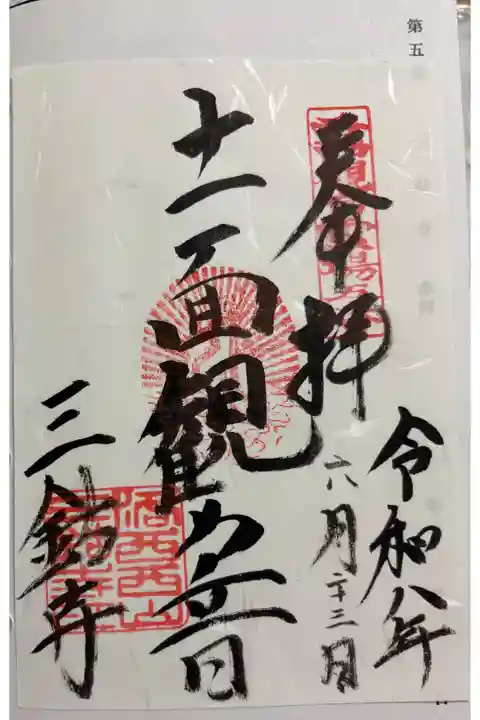 第五
奉拝
令和八年
六月二十三日
十一面観世音
三鈷寺
洛西西山